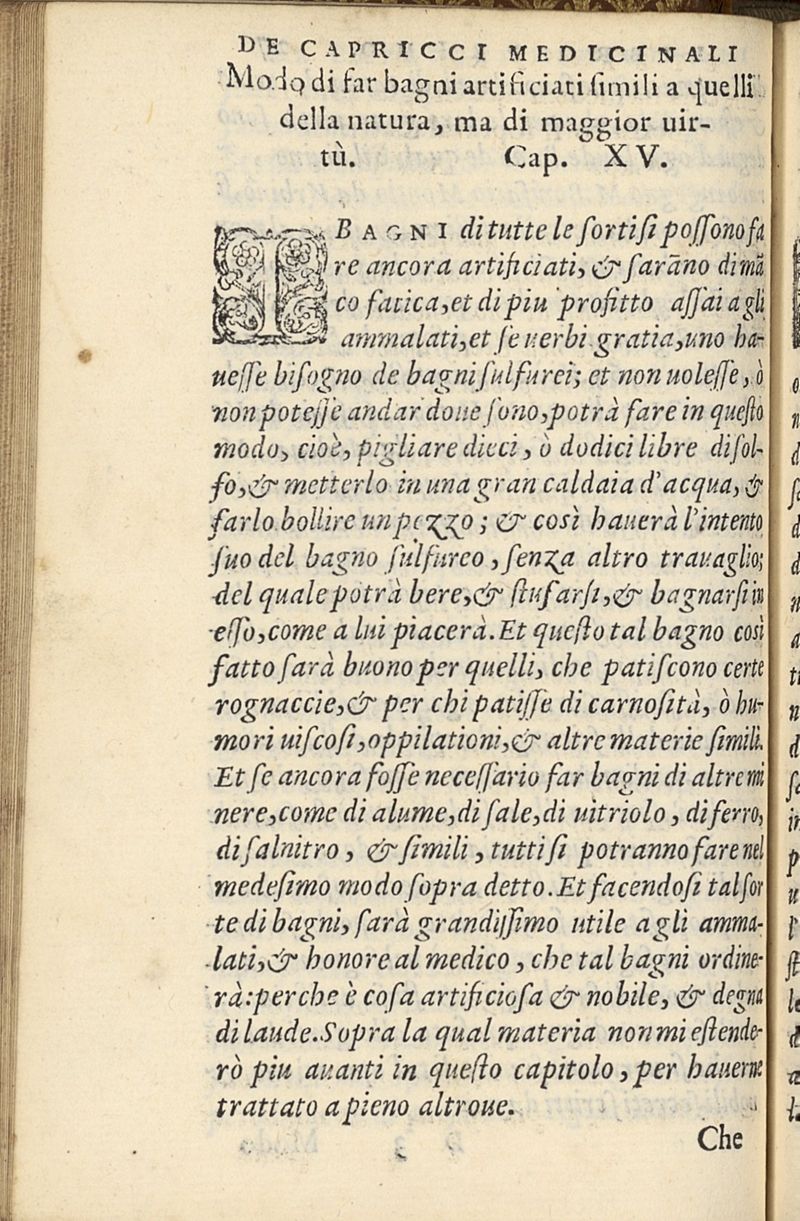 DE CAPRICCI MEDICINALI
Modo di far bagni artificiati simili a quelli
della natura, ma di maggior uir-
tù. Cap. XV.
I BAGNI di tutte le sorti si possono fa
re ancora artificiati, & sarāno di mā
co fatica, et di piu profitto assai a gli
ammalati, et se uerbi gratia, uno ha-
uesse bisogno de bagni sulfurei; et non uolesse, ò
non potesse andar doue sono, potrà fare in questo
modo, cioè, pigliare dieci, ò dodici libre di sol-
fo, & metterlo in una gran caldaia d'acqua, &
farlo bollire un pezzo; & così hauerà l'intento
suo del bagno sulfureo, senza altro trauaglio;
del quale potrà bere, & stufarsi, & bagnarsi in
esso, come a lui piacerà. Et questo tal bagno così
fatto sarà buono per quelli, che patiscono certe
rognaccie, & per chi patisse di carnosità, ò hu-
mori uiscosi, oppilationi, & altre materie simili.
Et se ancora fosse necessario far bagni di altre mi
nere, come di alume, di sale, di uitriolo, di ferro,
di salnitro, & simili, tutti si potranno fare nel
medesimo modo sopra detto. Et facendosi tal sor
te di bagni, sarà grandissimo utile a gli amma-
lati, & honore al medico, che tal bagni ordine-
rà: perche è cosa artificiosa & nobile, & degna
di laude. Sopra la qual materia non mi estende-
rò piu auanti in questo capitolo, per hauerne
trattato a pieno altroue.
Che